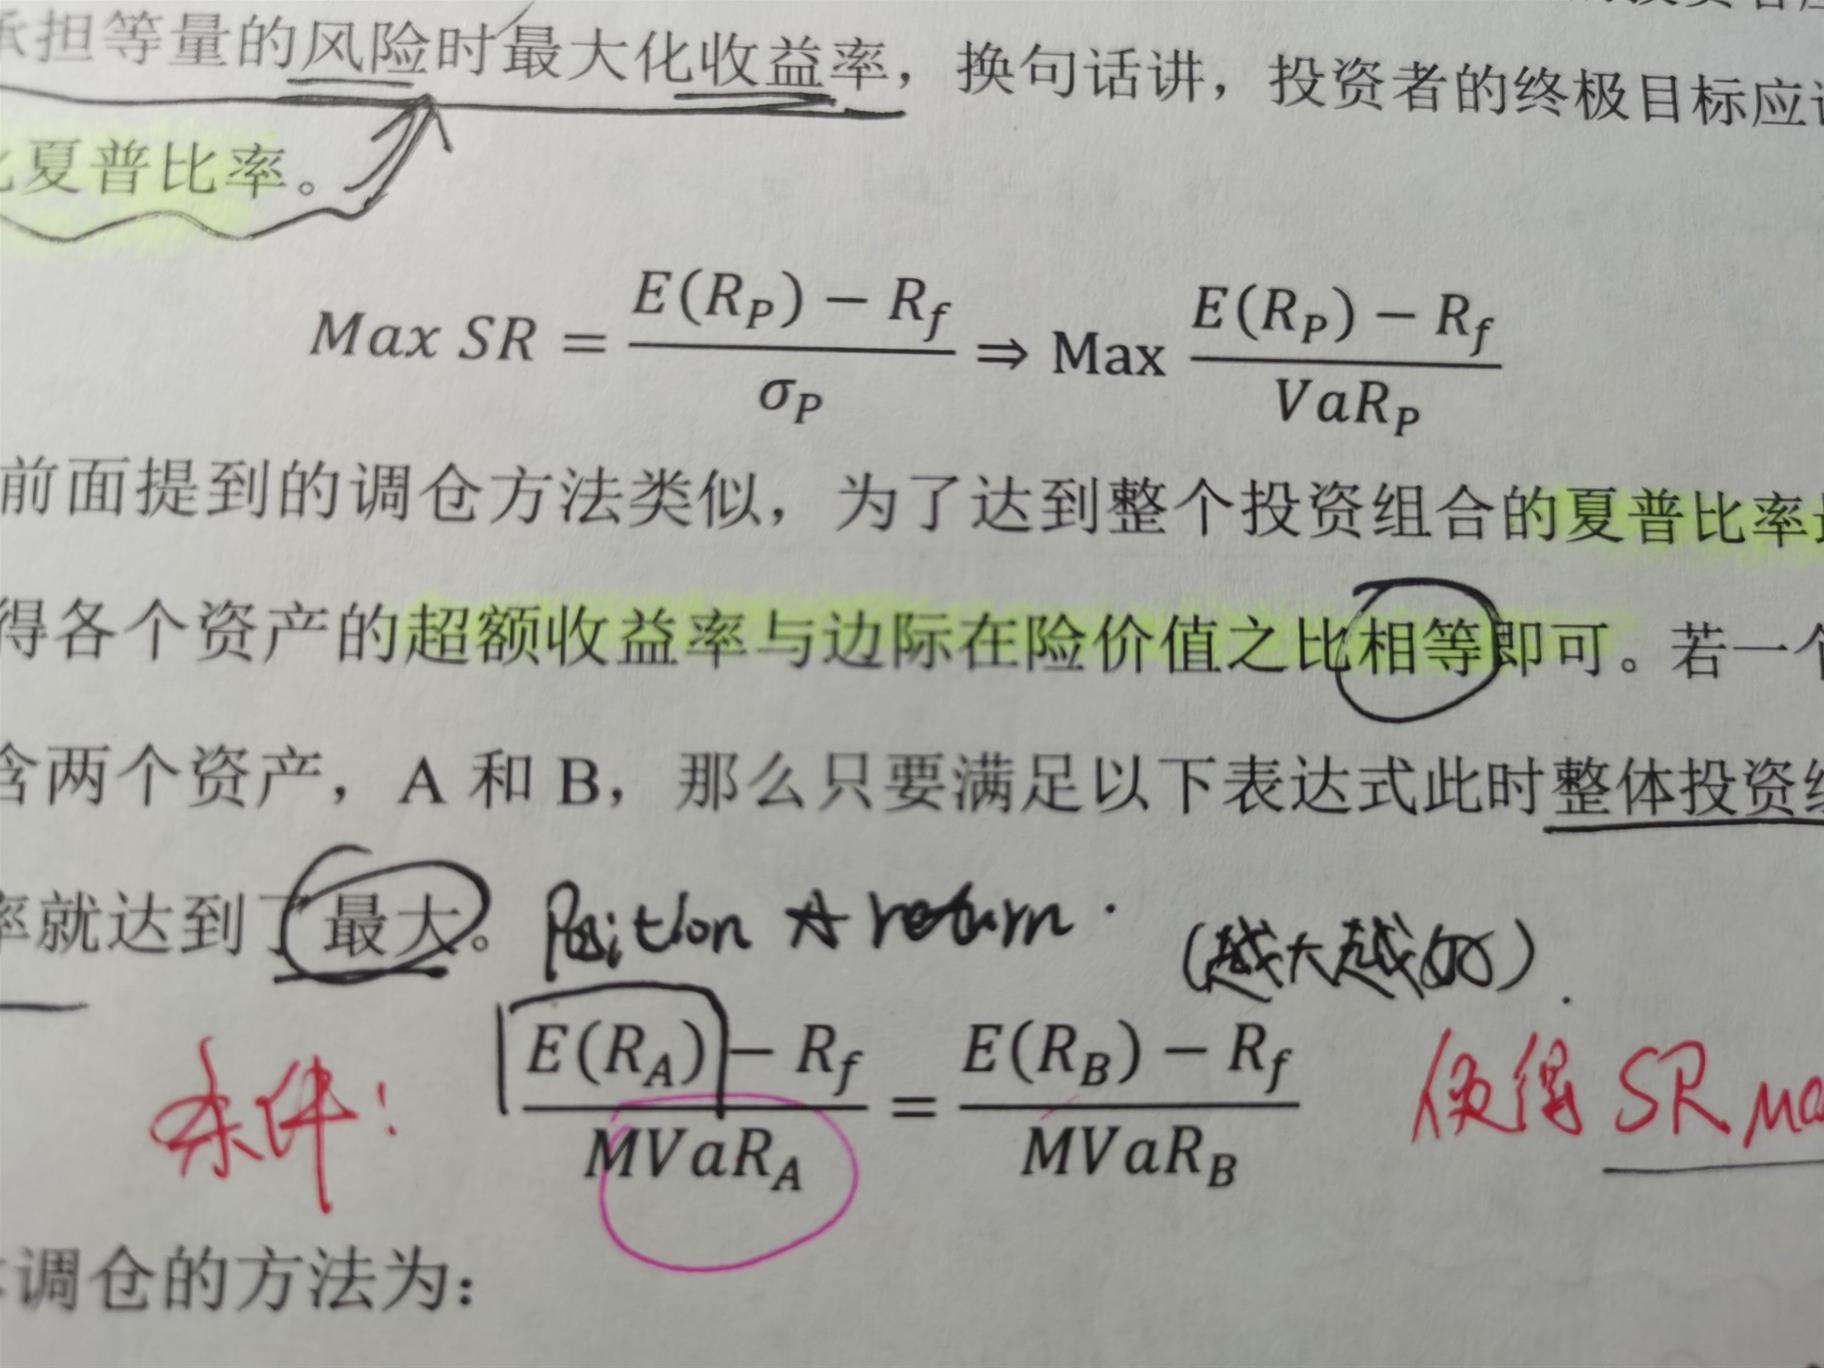 承担等量的风险时最大化收益率，换句话讲，投资者的终极目标应该
化夏普比率。
Max SR = \frac{E(R_P) − R_f}{σ_P} ⇒ Max \frac{E(R_P) − R_f}{VaR_P}
前面提到的调仓方法类似，为了达到整个投资组合的夏普比率
得各个资产的超额收益率与边际在险价值之比相等即可。若一个
含两个资产，A 和 B，那么只要满足以下表达式此时整体投资组
率就达到了最大。 Position return.
(越大越好).
条件: \frac{E(R_A) − R_f}{MVaR_A} = \frac{E(R_B) − R_f}{MVaR_B} 使得 SR
调仓的方法为：